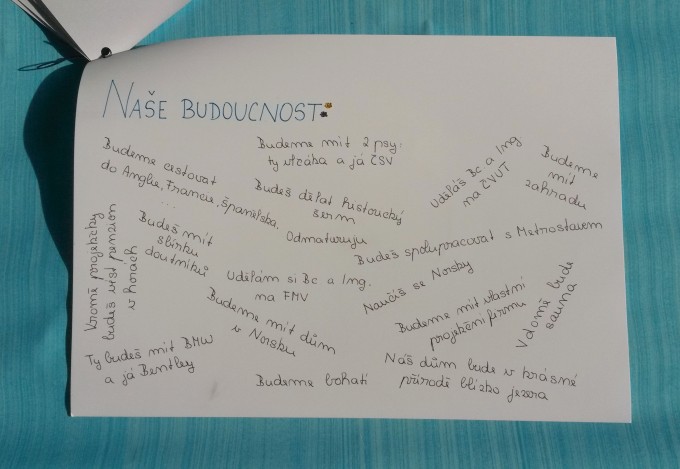 NAŠE BUDOUCNOST:
Budeme cestovat
do Anglie, Francie, Španělska,
...
Budeme mít 2 psy.
ty vlčáka a já ČSV
Budeš dělat historický
šerm
Odmaturuju
Uděláš Bc a Ing
na ČVUT
Budeme
mít
zahradu
Kromě projekčky
budeš vést penzion
v horách
Budeš mít
sbírku
doutníků
Budeš spolupracovat s Metrostavem
Udělám si Bc a Ing.
na FMV
Naučíš se Norsky
Budeme mít dům
v Norsku
Budeme mít vlastní
projekční firmu
V domě bude
sauna
Ty budeš mít BMW
a já Bentley
Budeme bohatí
Náš dům bude v krásné
přírodě blízko jezera